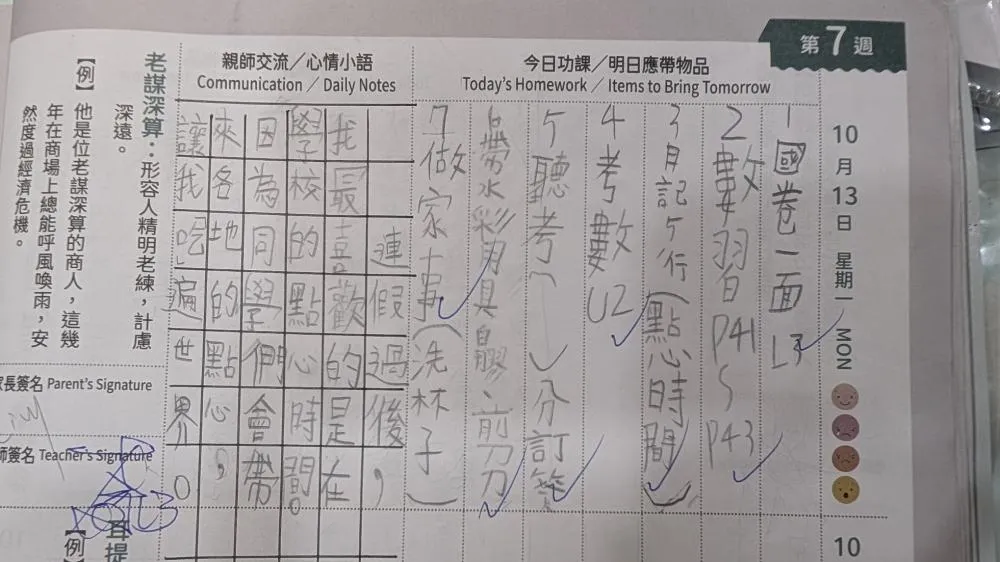 第7週
10月13日 星期一 MON
今日功課／明日應帶物品
Today's Homework／Items to Bring Tomorrow
1國卷一面L3
2數習自P41 S P43
3月記5行(點心時間)
4考數U2
5聽考( )分訂簽
6帶水彩用具、白膠、剪刀
7做家事(洗杯子)
親師交流／心情小語
Communication／Daily Notes
連假過後，
我最喜歡的是在
學校的點心時間。
因為同學們會帶
來各地的點心，
讓我吃遍世界。
老謀深算：形容人精明老練，計慮
深遠。
【例】他是位老謀深算的商人，這幾
年在商場上總能呼風喚雨，安
然度過經濟危機。
家長簽名 Parent's Signature
師簽名 Teacher's Signature
耳提
【例】
10